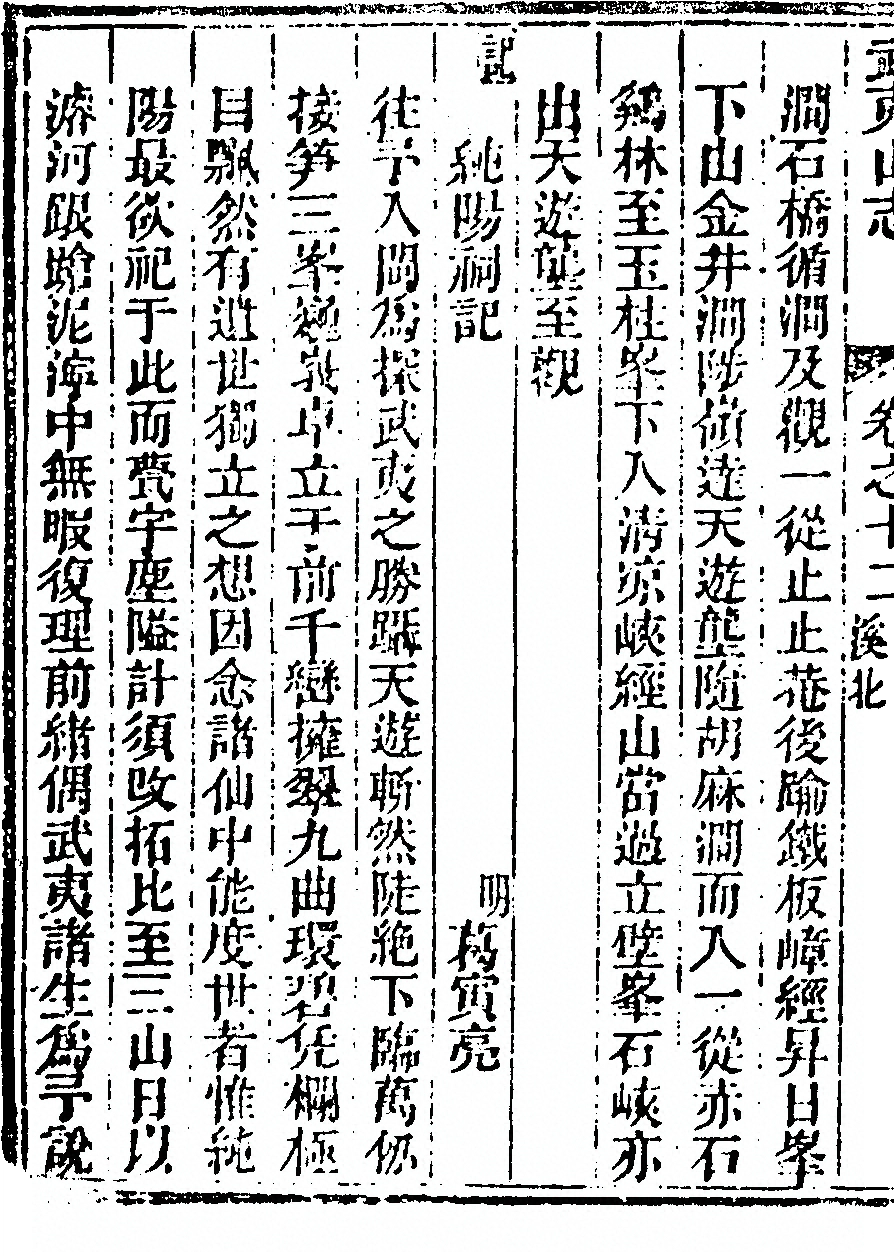 武夷山志 卷之十二 溪北
澗石橋循澗及觀一從止止菴後踰鐵板嶂經昇日峯
下山金井澗陟嶺達天遊壟隨胡麻澗而入一從赤石
鷄林至玉柱峯下入清凉峽經山當過立壁峯石峽亦
出天遊壟至觀
記
純陽祠記 明葛寅亮
往予入閩爲探武夷之勝躡天遊斬然陡絶下臨萬仞
接笋三峯卓立于前千巒擁翠九曲環碧凭欄極
目飄然有遺世獨立之想因念諸仙中能度世者惟純
陽最欲祀于此而甍宇塵隘計須改拓比至三山日以
濬河踉蹌泥濘中無暇復理前緒偶武夷諸生爲予說